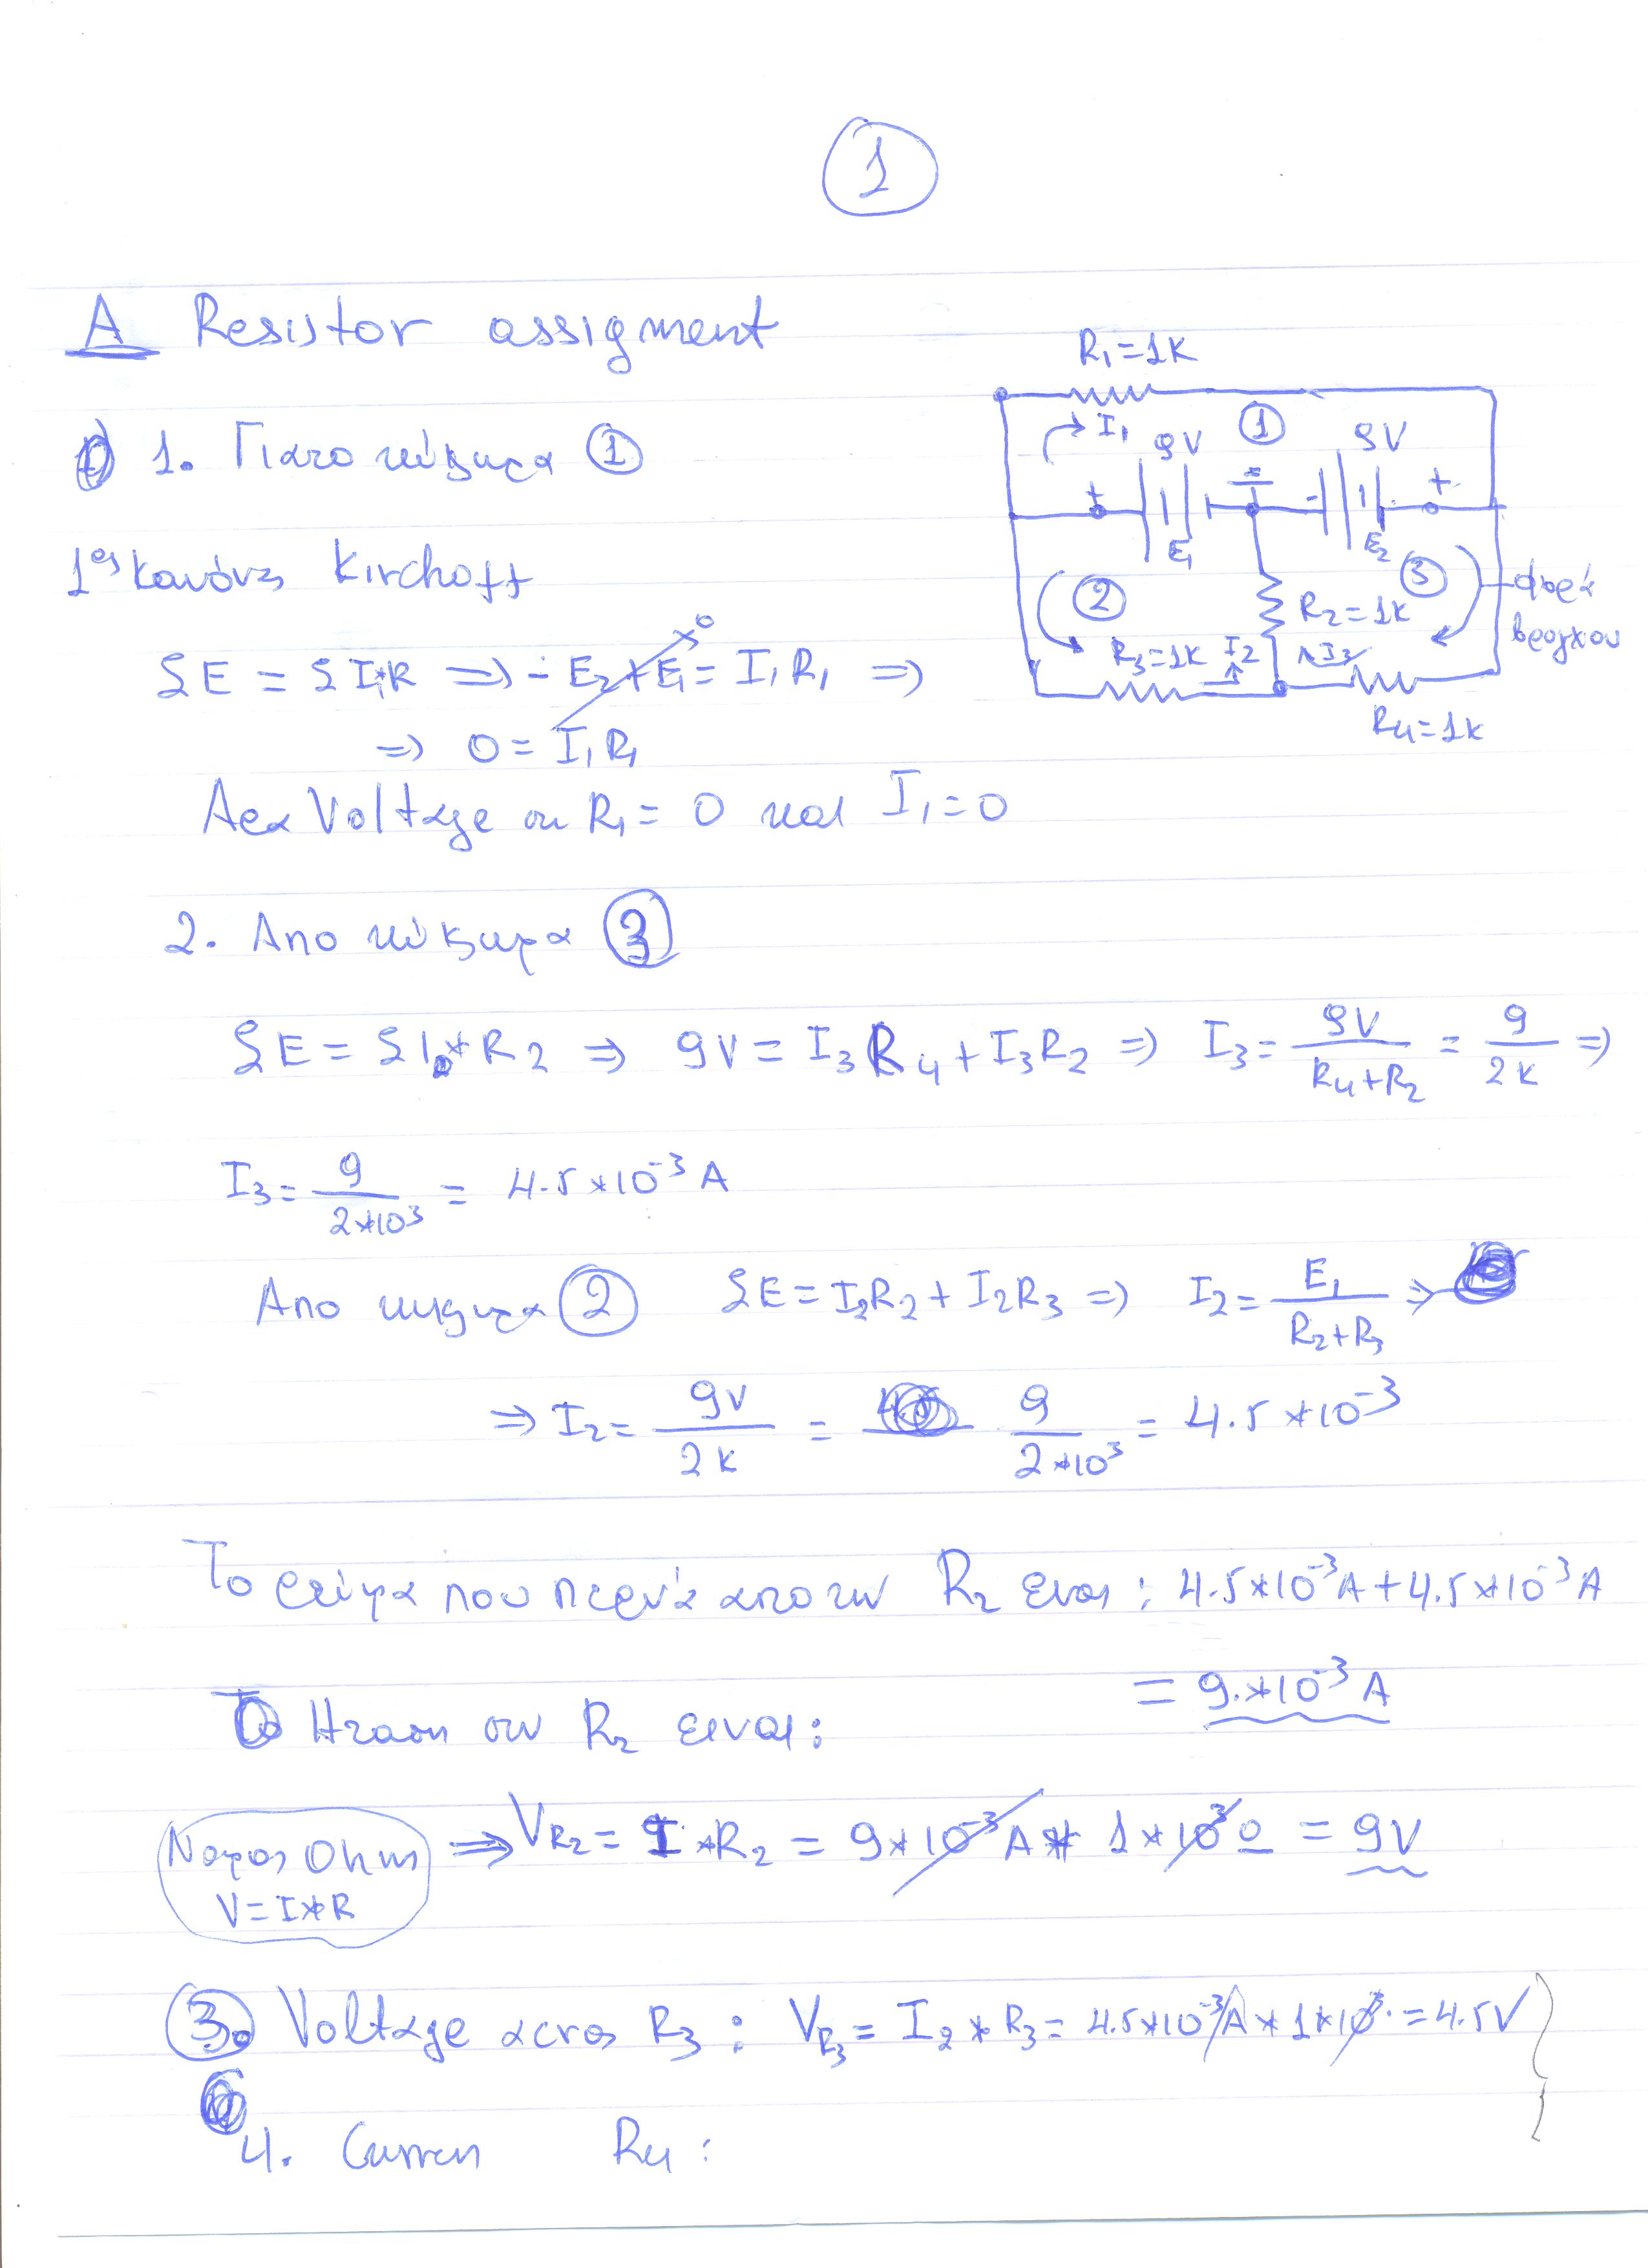 1
A Resistor assigment
1. Για το κύκλωμα 1
1ος κανόνας Kirchoff
ΣE = ΣI₁*R => -E₂+E₁ = I₁R₁ =>
=> 0 = I₁R₁
Αρα Voltage on R₁ = 0 και I₁=0
R₁=1K
I₁ 9V 1 9V
+ - +
E₁ E₂
2 3 φορά
R₂=1K βρογχου
R₃=1K I₂ I₃
R₄=1K
2. Απο κύκλωμα 3
ΣE = ΣI*R2 => 9V = I₃R₄+I₃R₂ => I₃= 9V/(R₄+R₂) = 9/2K =>
I₃= 9/(2*10³) = 4.5*10⁻³ A
Απο κυκλωμα 2 ΣE = I₂R₂ + I₂R₃ => I₂= E₁/(R₂+R₃) =>
=> I₂= 9V/2K = 9/(2*10³) = 4.5*10⁻³
Το ρεύμα που περνά απο την R₂ ειναι: 4.5*10⁻³A+4.5*10⁻³A
= 9.*10⁻³ A
Η ταση στην R₂ ειναι:
Νομος Ohms => V_R₂ = I*R₂ = 9*10⁻³A * 1*10³Ω = 9V
V=I*R
3. Voltage acros R₃: V_R₃ = I₂*R₃ = 4.5*10⁻³A*1*10³ = 4.5V
4. Curren R₄: